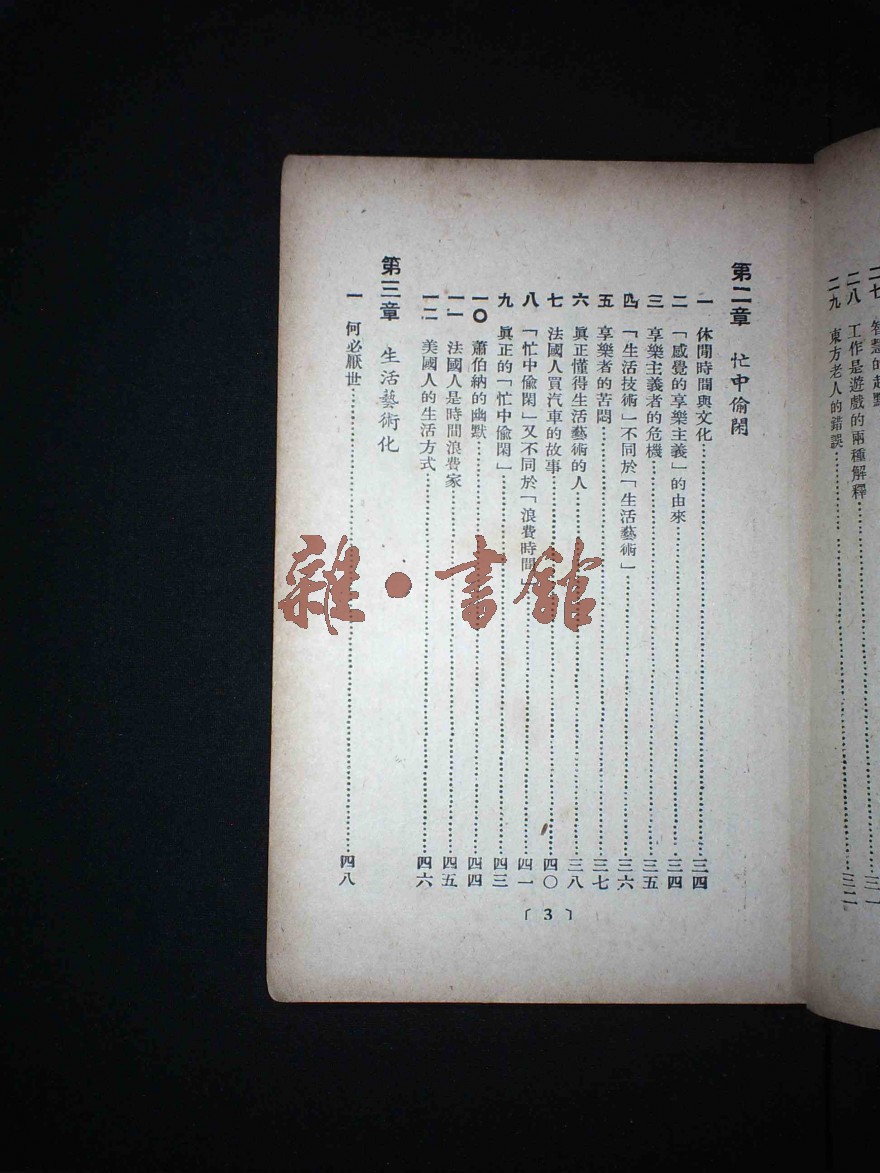 二七 智慧的起點……三一
二八 工作是遊戲的兩種解釋……三二
二九 東方老人的錯誤……
第二章 忙中偷閑
一 休閒時間與文化……三四
二 「感覺的享樂主義」的由來……三四
三 享樂主義者的危機……三五
四 「生活技術」不同於「生活藝術」……三六
五 享樂者的苦悶……三七
六 眞正懂得生活藝術的人……三八
七 法國人買汽車的故事……四〇
八 「忙中偷閑」又不同於「浪費時間」……四一
九 眞正的「忙中偷閑」……四三
一〇 蕭伯納的幽默……四四
一一 法國人是時間浪費家……四五
一二 美國人的生活方式……四六
第三章 生活藝術化
一 何必厭世……四八
〔3〕
雜·書館